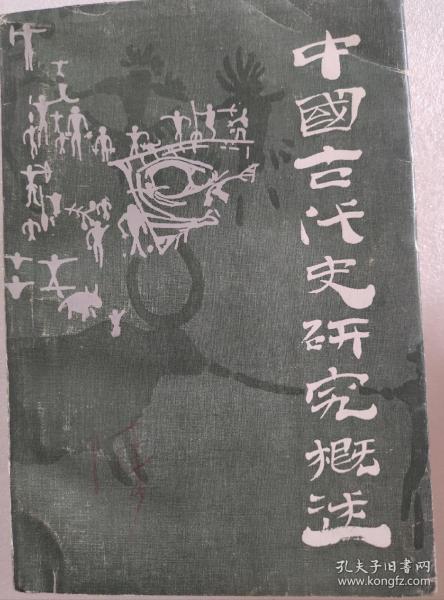 中國古代史研究概述
孔夫子旧书网
www.kongfz.com